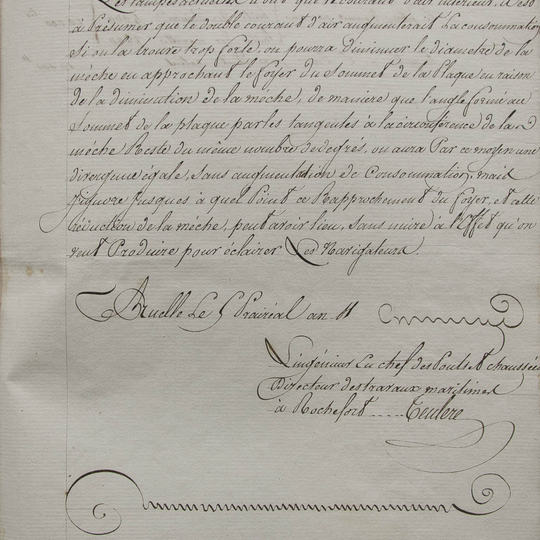 Les lampes actuelles n'ont que le courant d'air intérieur, il est
à Présumer que le double courant d'air augmenterait La consommation
si on la trouve trop forte, on pourra diminuer le diametre de la
mèche en approchant le foyer du Sommet de la Plaque en raison
de la diminution de la mèche, de maniere que l'angle formé au
Sommet de la plaque par les tangentes à la circonférence de la
mèche Reste du même nombre de degrés, on aura Par ce moyen une
divergence égale, sans augmentation de Consommation, mais
j'ignore jusques à quel Point ce Rapprochement du foyer, et cette
réduction de la mèche, peut avoir lieu, sans nuire à l'Effet qu'on
veut Produire pour éclairer Les Navigateurs.
Ruelle Le 5 Prairéal an 11
L'ingénieur En chef des Ponts et chaussées
Directeur des travaux maritimes
à Rochefort ..... Teulere